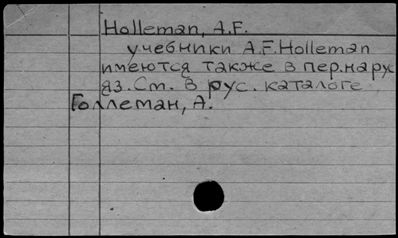 Holleman, A.F.
учебники A.F. Holleman
имеются также в пер. на рус
яз. См. в рус. каталоге
Голлеман, А.